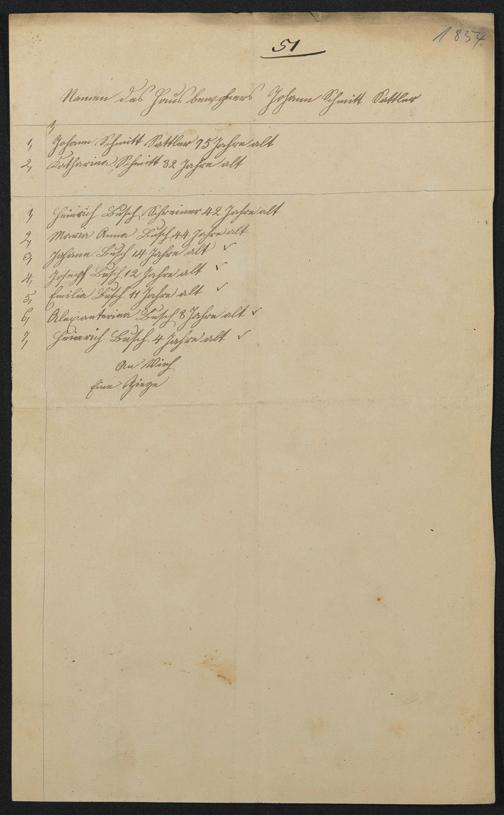 1854.
51
Namen des Haus bewohners Johann Schmitt Sattler
1, Johann Schmitt Sattler 75 Jahre alt
2, Katharina Schmitt 32 Jahre alt
1, Heinrich Busch, Schreiner 42 Jahre alt
2, Maria Anna Busch 44 Jahre alt
3, Johann Busch 14 Jahre alt
4, Joseph Busch 12 Jahre alt
5, Emilia Busch 11 Jahre alt
6, Alexanterina Busch 8 Jahre alt
7, Heinrich Busch 4 Jahre alt
An Vieh
Eine Ziege